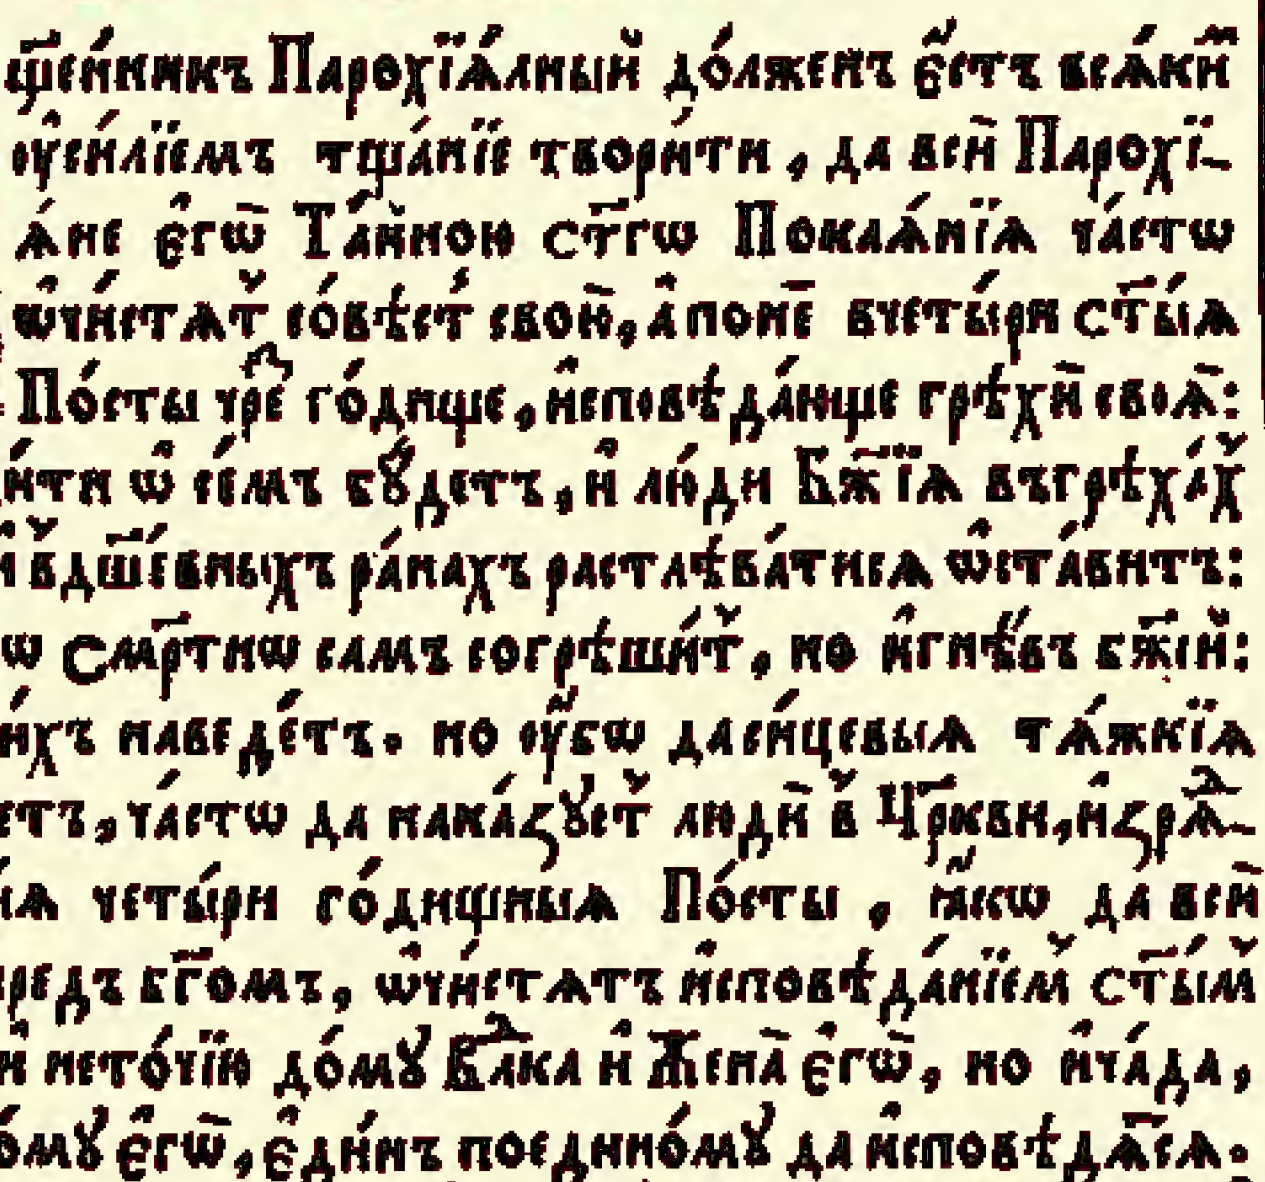 щ҃е́нникъ Парохїѧ́лный до́лженъ є҆́стъ всѧ́ки
ѹ҆си́лїемъ тща́нїе твори́ти , да вси̑ Парохї-
ѧ́не є҆гѡ̀ Та́йною ст҃гѡ Покаѧ́нїѧ ча́стѡ
ѡ҆чи́стѧт̾ со́вѣст̾ свою̀, а҆ поне̑ вчеты́ри ст҃ы́ѧ
По́сты чре̑з̾ го́дище, и҆сповѣ́дающе грѣхѝ своѧ̑:
и́ти ѡ҆ се́мъ бꙋ́детъ, и҆ лю́ди Бж҃їѧ въгрѣха́х̾
и҆ в̾дш҃е́вныхъ ра́нахъ растлѣва́тисѧ ѡ҆ста́витъ:
ѡ смр҃тнѡ самъ согрѣши́т̾, но и҆гнѣ́въ бж҃їй:
и́хъ наведе́тъ. но ѹ҆́бѡ даси́цевыѧ тѧ́жкїѧ
етъ, ча́стѡ да нака́зꙋет̾ люді̀ в̾ Цр҃кви, и҆зрѧ́д-
ыѧ четы́ри го́дищныѧ По́сты , ꙗ҆́кѡ да вси̑
предъ бг҃омъ, ѡ҆чи́стѧтъ и҆сповѣ́данїем̾ ст҃ы́м̾
и҆ нето́чїю до́мꙋ Влⷣка и҆ Жена̀ є҆гѡ̀, но и҆ча́да,
о́мꙋ є҆гѡ̀, є҆ди́нъ поединно́мꙋ да и҆сповѣ́дѧ́тсѧ.